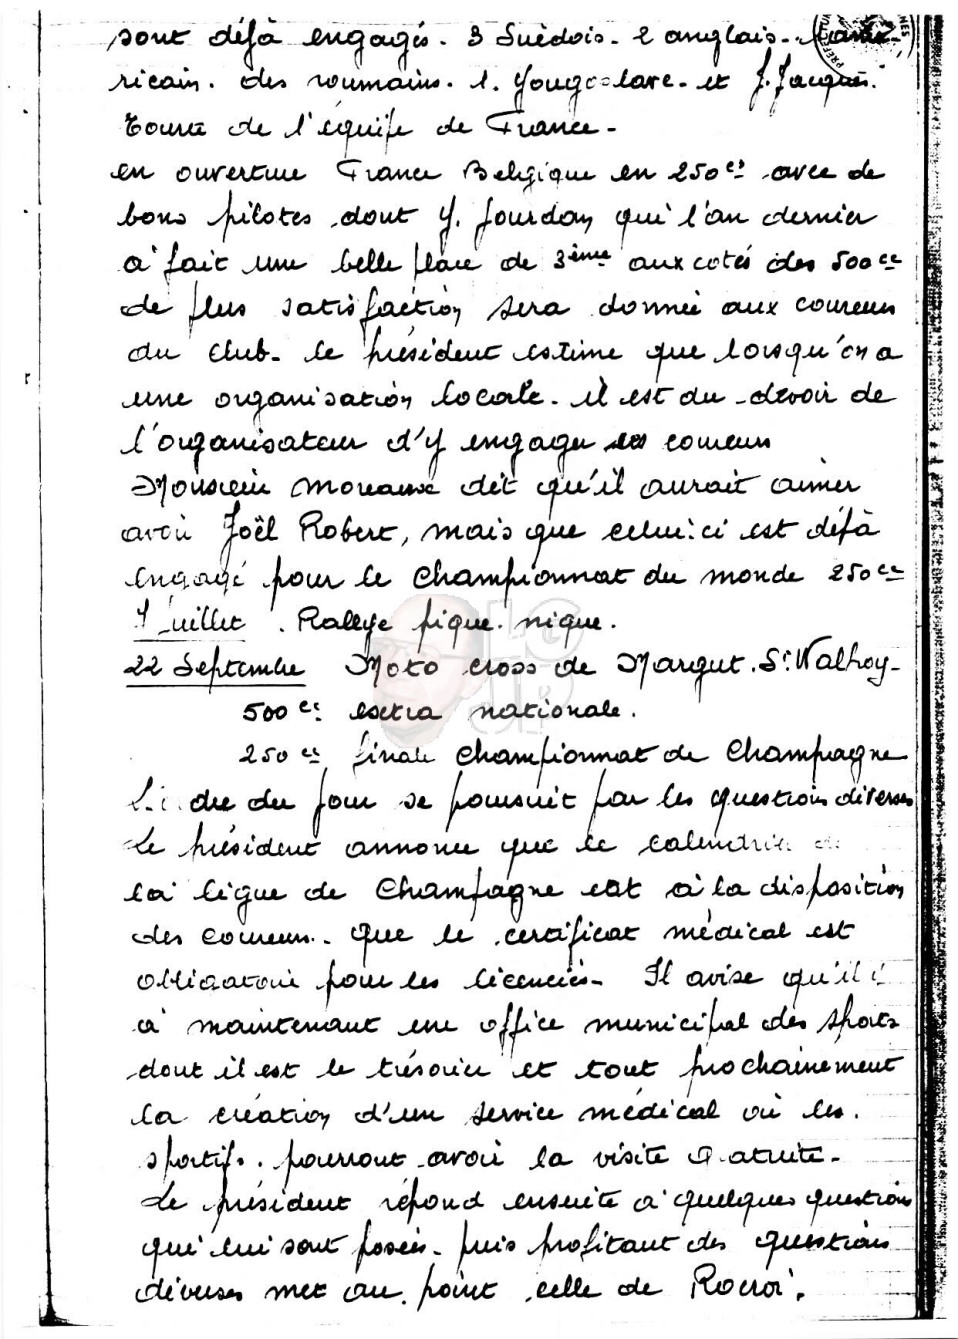 sont déjà engagés. 3 Suédois. 2 anglais.
ricain. des roumains. 1. Yougoslave. et J. Jacques.
toute de l'équipe de France.
en ouverture France Belgique en 250cc avec de
bons pilotes dont Y. Jourdan qui l'an dernier
a fait une belle place de 3ème aux cotés des 500cc
de plus satisfaction sera donnée aux coureurs
du club. le président estime que lorsqu'on a
une organisation locale. il est du devoir de
l'organisateur d'y engager ses coureurs
Monsieur moreaux dit qu'il aurait aimer
avoir Joël Robert, mais que celui.ci est déjà
engagé pour le championnat du monde 250cc
Juillet. Rallye pique.nique.
22 Septembre Moto cross de Margut. St Walfroy.
500cc extra nationale.
250cc finale championnat de Champagne
L'ordre du jour se poursuit par les questions diverses
Le président annonce que le calendrier de
la ligue de Champagne est à la disposition
des coureurs. que le certificat médical est
obligatoire pour les licenciés. Il avise qu'il y
a maintenant un office municipal des sports
dont il est le trésorier et tout prochainement
la création d'un service médical où les
sportifs. pourront avoir la visite gratuite.
Le président répond ensuite à quelques questions
qui lui sont posées. puis profitant des questions
diverses met au point celle de Rocroi.